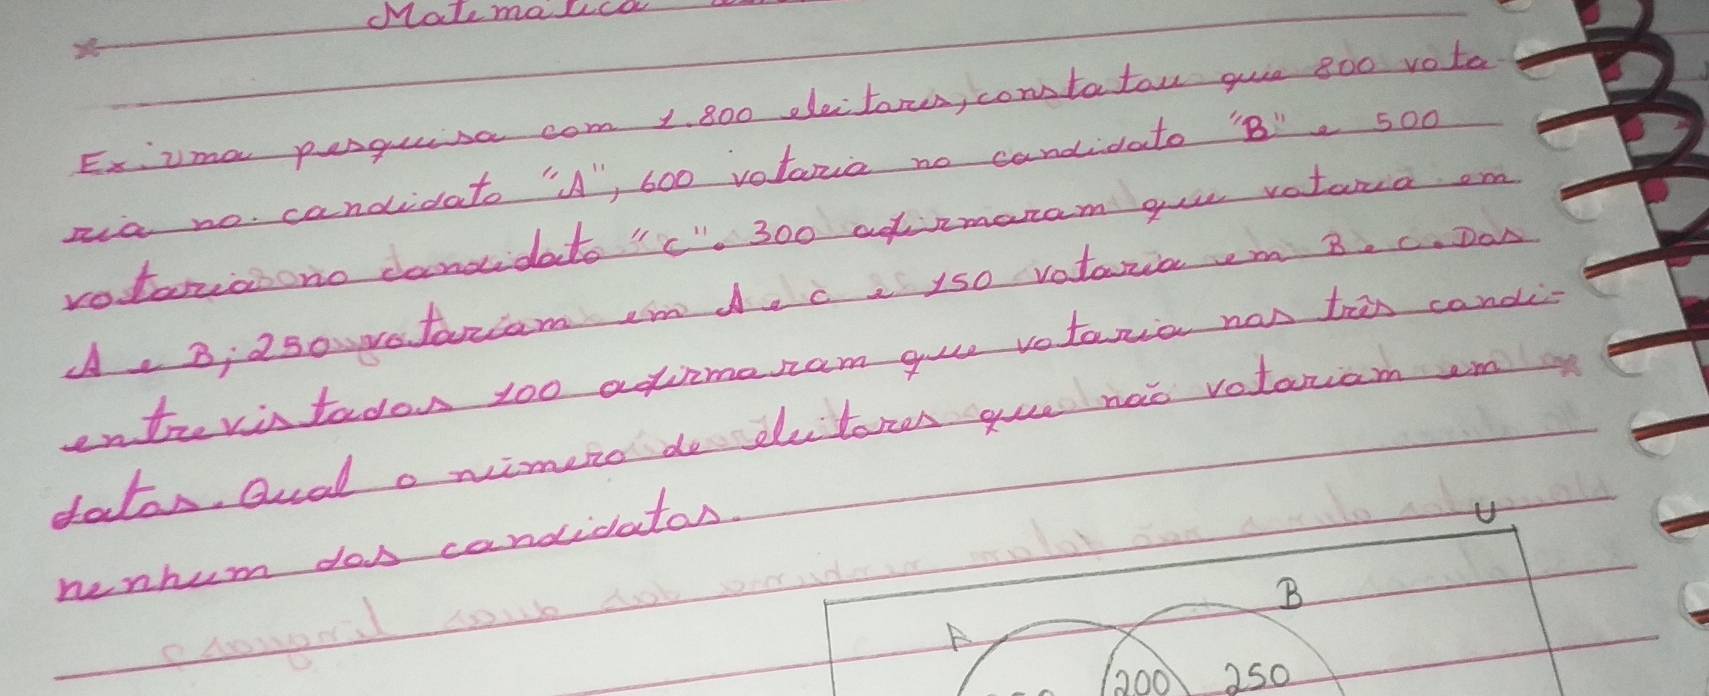 Matematica
Ex: uma pesquisa com 1.800 eleitores, constatou que 800 vota
ria no candidato "A", 600 votaria no candidato "B" e 500
votaria no candidato "C". 300 afirmaram que votaria em
A e B, 250 votariam em A e C e 150 votaria em B e C. Das
entrevistados 100 afirmaram que votaria nas três candi-
datos. Qual o número de eleitores que não votariam em
nenhum dos candidatos.
U
A B
200 250